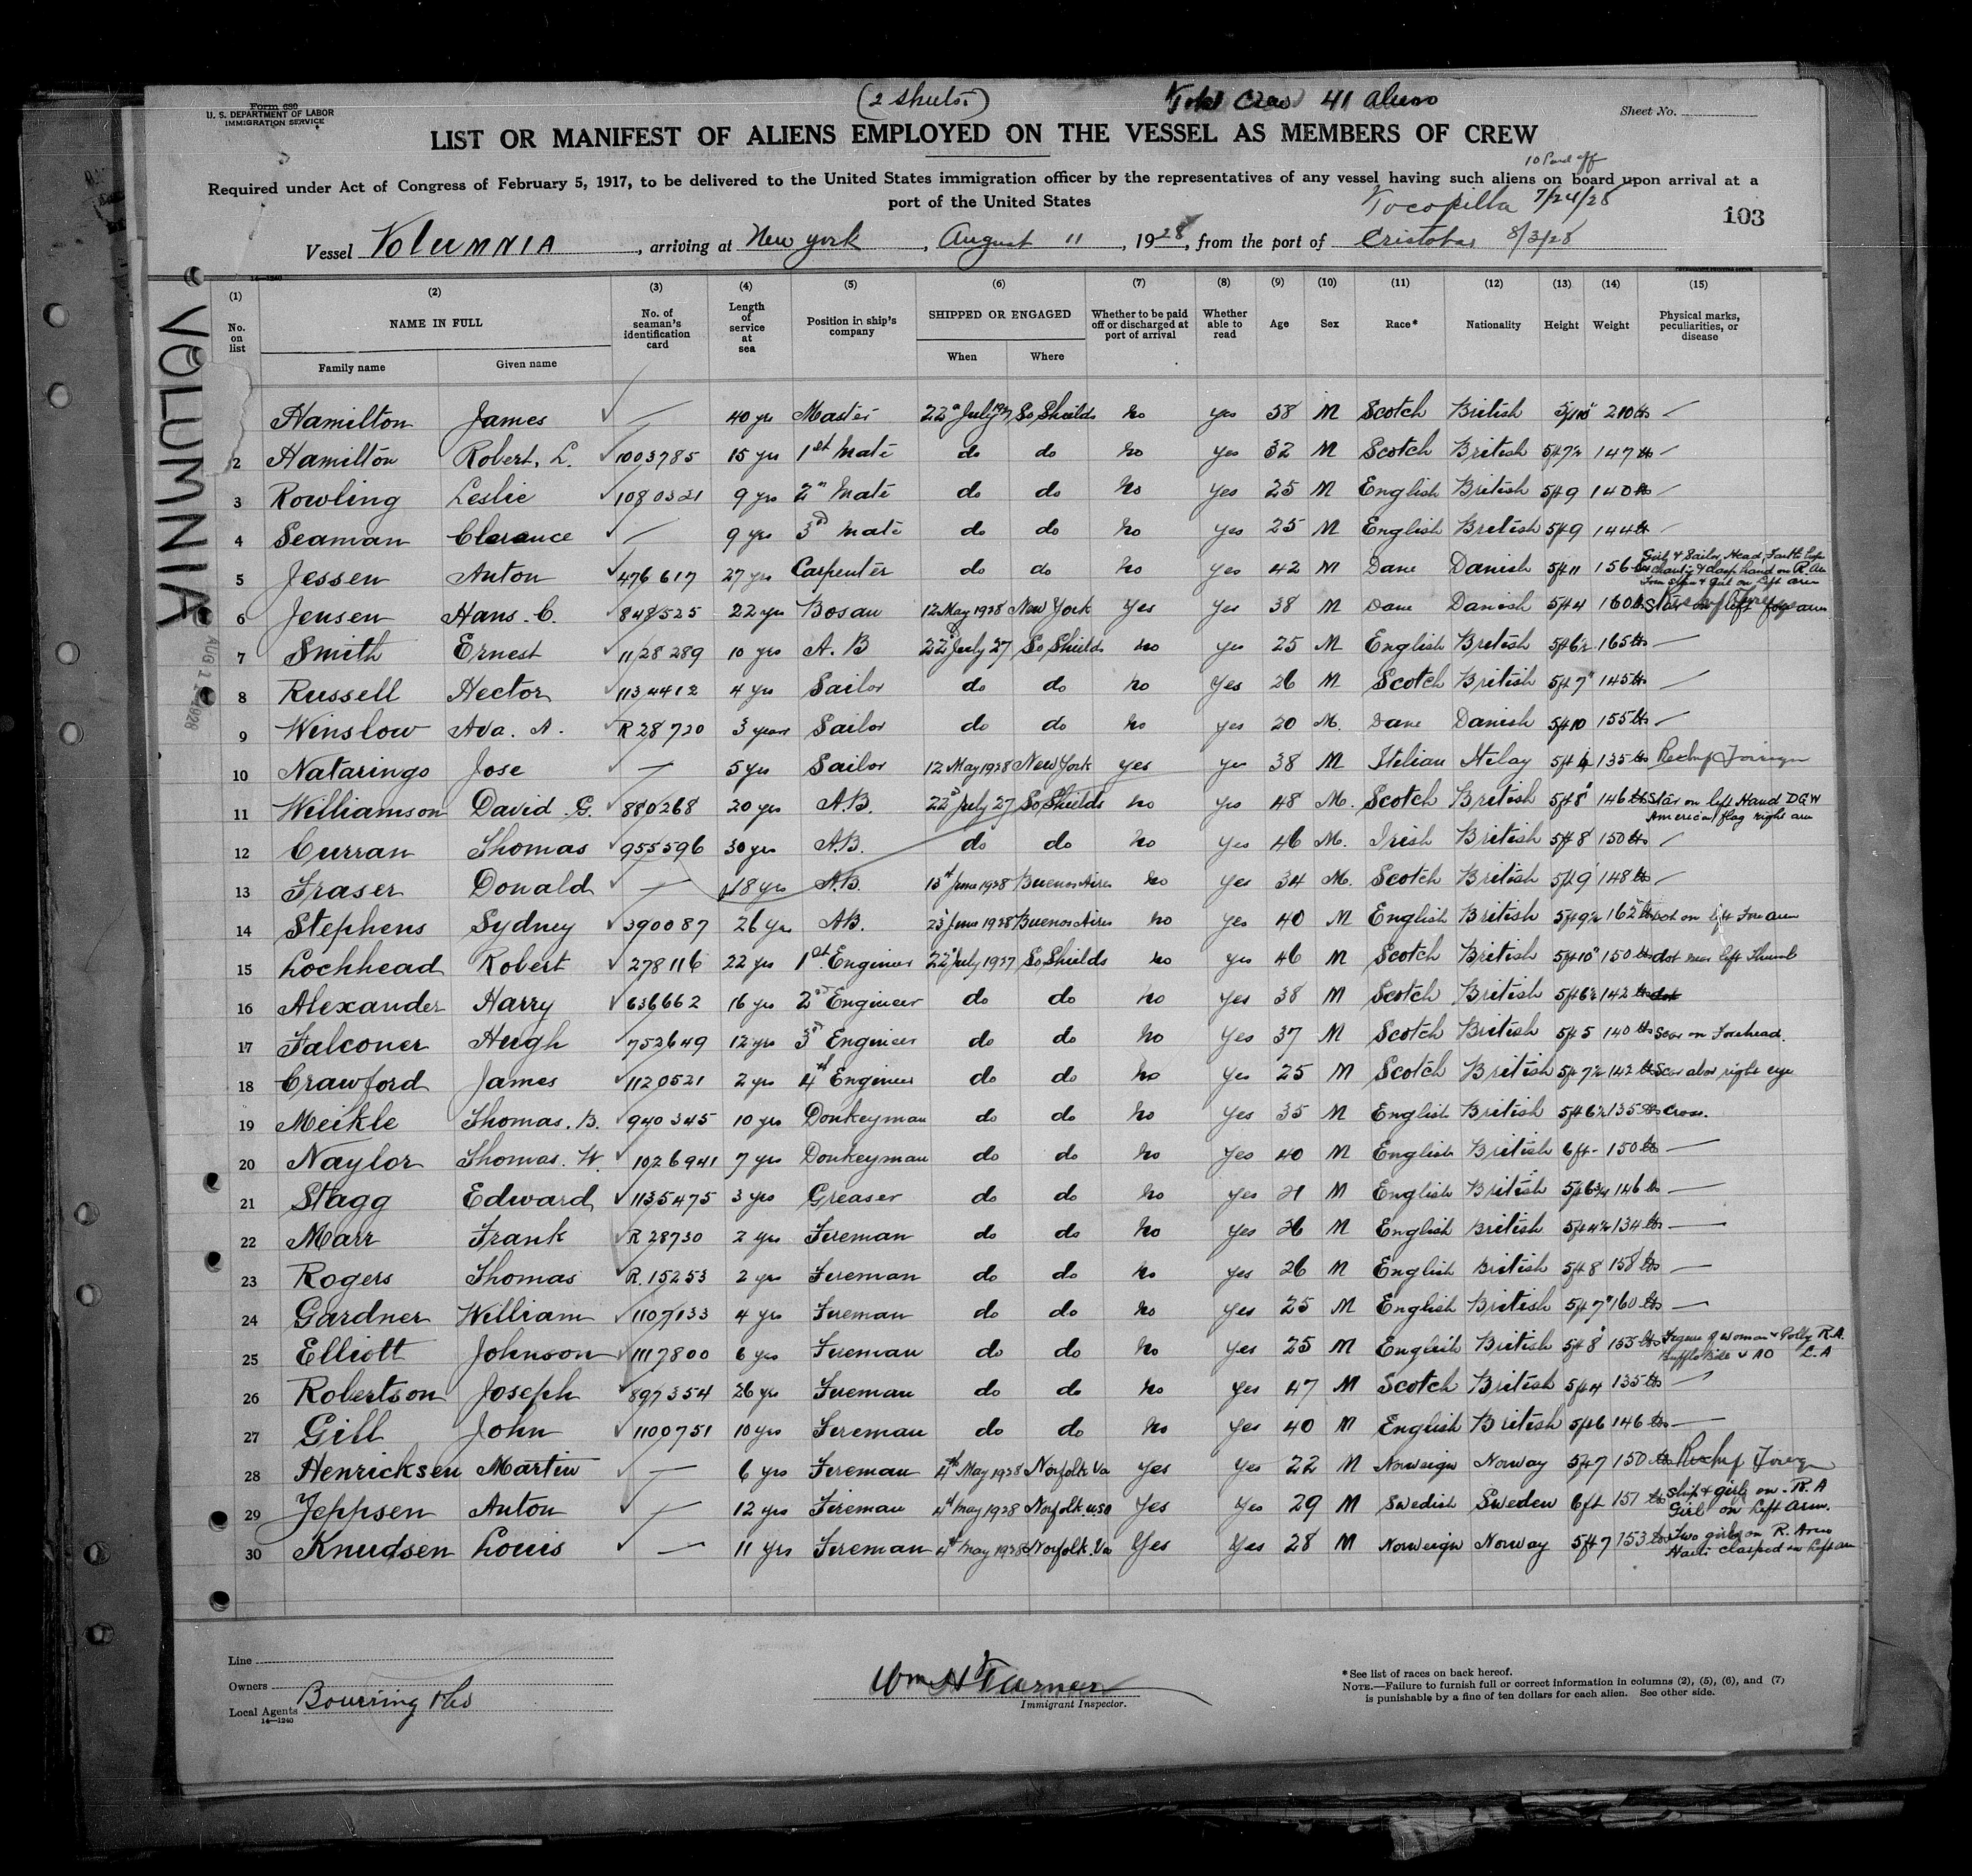 Form 680
U. S. DEPARTMENT OF LABOR
IMMIGRATION SERVICE
(2 sheets)
Total Crew 41 aliens
Sheet No.
LIST OR MANIFEST OF ALIENS EMPLOYED ON THE VESSEL AS MEMBERS OF CREW
10 Paid off
Required under Act of Congress of February 5, 1917, to be delivered to the United States immigration officer by the representatives of any vessel having such aliens on board upon arrival at a
port of the United States
Tocopilla 7/24/28
103
Vessel VOLUMNIA, arriving at New York, August 11, 1928, from the port of Cristobal 8/3/28
14—1240
VOLUMNIA
(1) (2) (3) (4) (5) (6) (7) (8) (9) (10) (11) (12) (13) (14) (15)
No. on list NAME IN FULL No. of seaman's identification card Length of service at sea Position in ship's company SHIPPED OR ENGAGED Whether to be paid off or discharged at port of arrival Whether able to read Age Sex Race* Nationality Height Weight Physical marks, peculiarities, or disease
Family name Given name When Where
Hamilton James — 40 yrs Master 22 July 1927 So Shields no yes 58 M Scotch British 5/10" 210 lbs —
2 Hamilton Robert. L. 1003785 15 yrs 1st Mate do do no yes 32 M Scotch British 5ft 7½ 147 lbs —
3 Rowling Leslie 1080321 9 yrs 2nd Mate do do no yes 25 M English British 5ft 9 140 lbs —
4 Seaman Clarence — 9 yrs 3rd Mate do do no yes 25 M English British 5ft 9 144 lbs —
5 Jessen Anton 476617 27 yrs Carpenter do do no yes 42 M Dane Danish 5ft 11 156 lbs Girl & Sailor Head, Faith hope & charity & clasp hand on R. Arm on Left arm
6 Jensen Hans. C. 848525 22 yrs Bosun 12 May 1928 New York yes yes 38 M Dane Danish 5ft 4 160 lbs Star on left fore arm
7 Smith Ernest 1128289 10 yrs A. B 22 July 27 So Shields no yes 25 M English British 5ft 6½ 165 lbs —
8 Russell Hector 1134412 4 yrs Sailor do do no yes 26 M Scotch British 5ft 7" 145 lbs —
9 Winslow Ada. A. R 28720 3 years Sailor do do no yes 20 M. Dane Danish 5ft 10 155 lbs —
10 Nataringo Jose — 5 yrs Sailor 12 May 1928 New York yes yes 38 M Italian Italy 5ft 4 135 lbs Reshp Foreign
11 Williamson David. G. 880268 20 yrs A.B. 22 July 27 So Shields no yes 48 M. Scotch British 5ft 8" 146 lbs Star on left Hand DGW American flag right arm
12 Curran Thomas 955596 30 yrs A.B. do do no yes 46 M. Irish British 5ft 8 150 lbs —
13 Fraser Donald — 18 yrs A.B. 13th June 1928 Buenos Aires no yes 34 M. Scotch British 5ft 9 148 lbs —
14 Stephens Sydney 390087 26 yrs A.B. 23 June 1928 Buenos Aires no yes 40 M English British 5ft 9½ 162 lbs dot on left Fore arm
15 Lochhead Robert 278116 22 yrs 1st. Engineer 22 July 1927 So Shields no yes 46 M Scotch British 5ft 10" 150 lbs dot near left Thumb
16 Alexander Harry 636662 16 yrs 2nd Engineer do do no yes 38 M Scotch British 5ft 6½ 142 lbs dot
17 Falconer Hugh 752649 12 yrs 3rd Engineer do do no yes 37 M Scotch British 5ft 5 140 lbs Scar on Forehead.
18 Crawford James 1120521 2 yrs 4th Engineer do do no yes 25 M Scotch British 5ft 7½ 142 lbs Scar abov right eye
19 Meikle Thomas. B. 940345 10 yrs Donkeyman do do no yes 35 M English British 5ft 6½ 135 lbs Cross.
20 Naylor Thomas. W. 1026941 7 yrs Donkeyman do do no yes 40 M English British 6 ft – 150 lbs —
21 Stagg Edward 1135475 3 yrs Greaser do do no yes 21 M English British 5ft 6¾ 146 lbs —
22 Marr Frank R 28730 2 yrs Fireman do do no yes 26 M English British 5ft 4½ 134 lbs —
23 Rogers Thomas R. 15253 2 yrs Fireman do do no yes 26 M English British 5ft 8 158 lbs —
24 Gardner William 1107133 4 yrs Fireman do do no yes 25 M English British 5ft 7" 160 lbs —
25 Elliott Johnson 1117800 6 yrs Fireman do do no yes 25 M English British 5ft 8" 155 lbs Figure of woman & Polly R.A. Buffalo Bill & AO L.A
26 Robertson Joseph 897354 26 yrs Fireman do do no yes 47 M Scotch British 5ft 4 135 lbs —
27 Gill John 1100751 10 yrs Fireman do do no yes 40 M English British 5ft 6 146 lbs —
28 Henricksen Martin — 6 yrs Fireman 4th May 1928 Norfolk Va yes yes 22 M Norweign Norway 5ft 7 150 lbs Reshp Foreign
29 Jeppsen Anton — 12 yrs Fireman 4th May 1928 Norfolk USA Yes Yes 29 M Swedish Sweden 6 ft 151 lbs Ship & girl on R. A Girl on Left Arm.
30 Knudsen Louis — 11 yrs Fireman 4th May 1928 Norfolk. Va Yes Yes 28 M Norweign Norway 5ft 7 153 lbs Two girls on R. Arm clasped on Left arm
Line
Owners
Local Agents Bowring & Co
14—1240
Wm H Turner
Immigrant Inspector.
* See list of races on back hereof.
NOTE.—Failure to furnish full or correct information in columns (2), (5), (6), and (7)
is punishable by a fine of ten dollars for each alien. See other side.